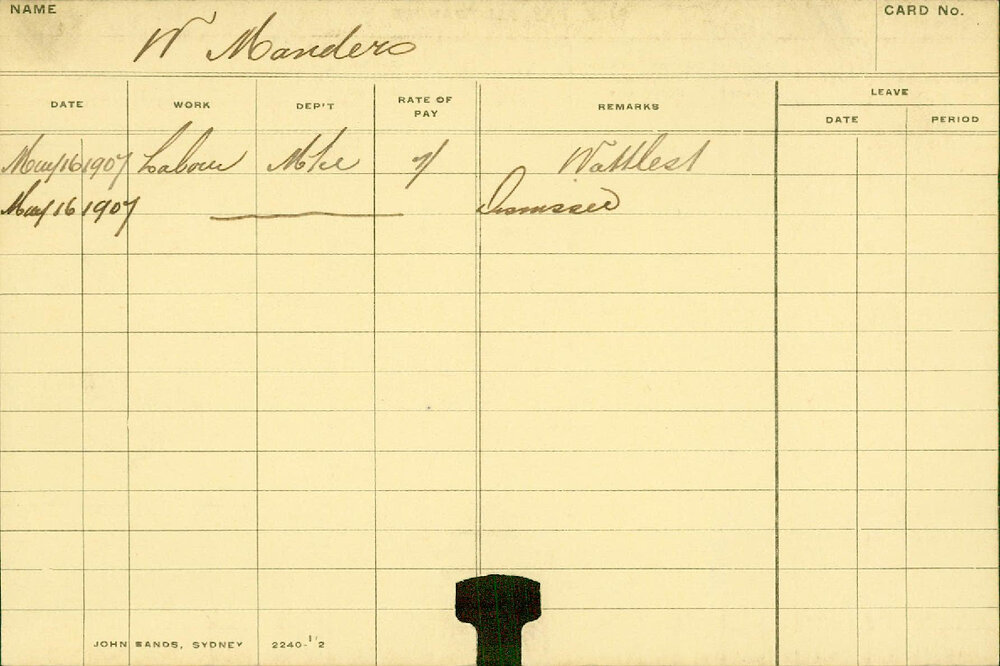 NAME
W Manders
CARD No.
DATE WORK DEP'T RATE OF PAY REMARKS LEAVE
DATE PERIOD
May 16 1907 Labour 7/ Wattle St
May 16 1907 Dismissed
JOHN SANDS, SYDNEY 2240-1/2